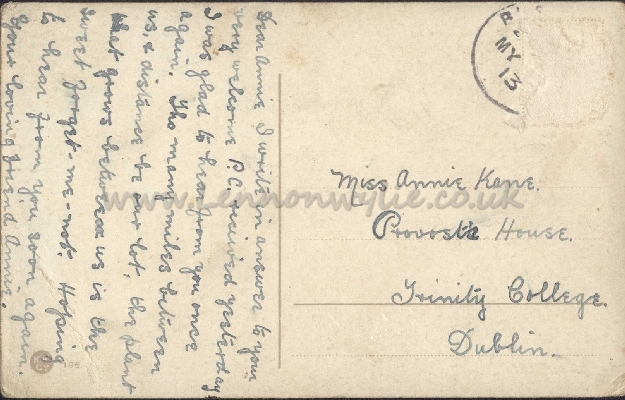 Dear Annie I write in answer to your
very welcome P.C. received yesterday
I was glad to hear from you once
again. Tho many miles between
us, & distance be our lot, the plant
that grows between us is the
sweet forget-me-not. Hoping
to hear from you soon again.
Your loving friend Annie.
MY
13
Miss Annie Kane.
Provost's House.
Trinity College.
Dublin.
www.lennonwylie.co.uk